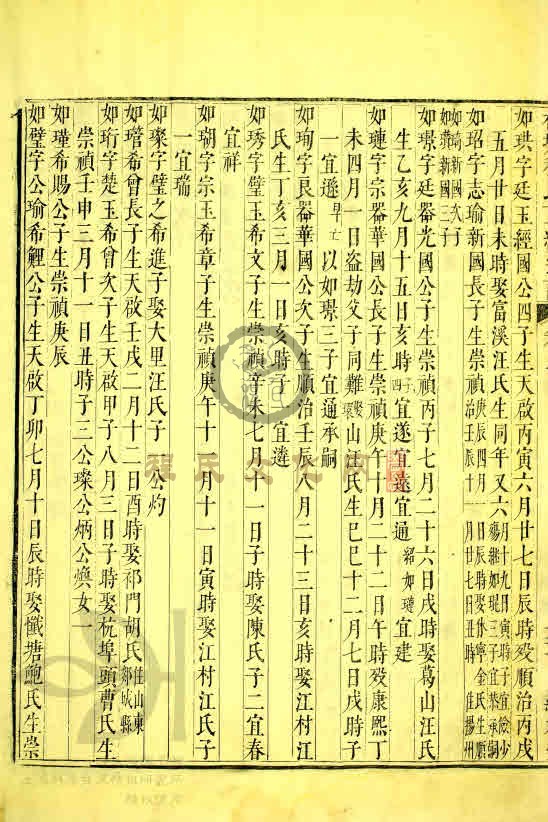 如珙字廷玉經國公四子生天啟丙寅六月廿七日辰時歿順治丙戌
五月廿日未時娶富溪汪氏生同年又六月十九日寅時子宜鯰少殤繼如琨三子宜恭承嗣
如玿字志瑜新國長子生崇禎庚辰四月日辰時娶休寧金氏生順治壬辰十一月廿七日丑時住揚州
如琦新國次子
如璜新國三子
如璟字廷器光國公子生崇禎丙子七月二十六日戌時娶葛山汪氏
生乙亥九月十五日亥時子四宜遂宜遠宜通紹如璉宜建
如璉字文器華國公長子生崇禎庚午十月二十二日午時歿康熙丁
未四月一日盜劫父子同難娶環山方氏生己巳十二月七日戌時子
一宜遜早亡以如璟三子宜通承嗣
如珣字艮器華國公次子生順治壬辰八月二十三日亥時娶江村江
氏生丁亥三月一日亥時子一宜達
如琇字璧玉希文子生崇禎辛未七月十一日子時娶陳氏子二宜春
宜祥
如瑚字宗玉希章子生崇禎庚午十一月十一日寅時娶江村江氏子
一宜瑞
如璨字璧之希進子娶大里汪氏子一公灼
如璔希曾長子生天啟壬戌二月十二日酉時娶祁門胡氏住山東郯城縣
如珩字楚玉希曾次子生天啟甲子八月三日子時娶杭埠頭曹氏生
崇禎壬申三月十一日丑時子三公璨公炳公煥女一
如瑾希賜公子生崇禎庚辰
如璧字公瑜希鯉公子生天啟丁卯七月十日辰時娶懺塘鮑氏生崇